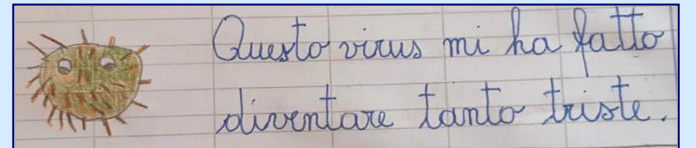 Questo virus mi ha fatto
diventare tanto triste.